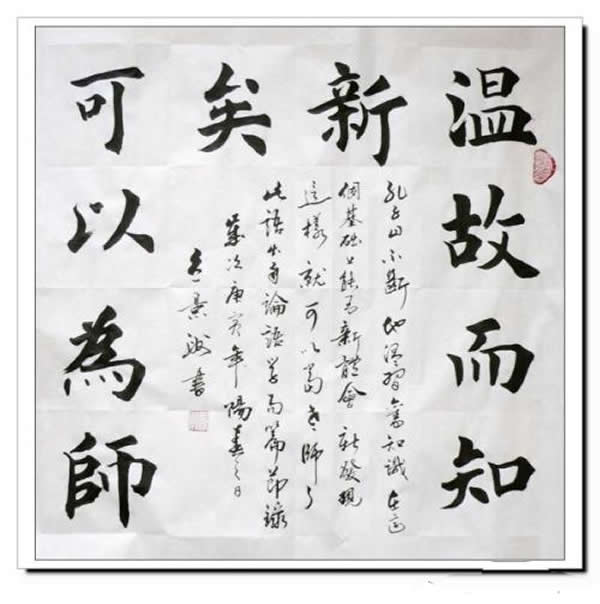 温故而知
新
矣
可以為師
孔子曰不斷地温習舊知識在這
個基础上能有新體會新發現
這樣就可以為老師了
此語出自論語学而篇節録
歲次庚寅年陽春之日
景書